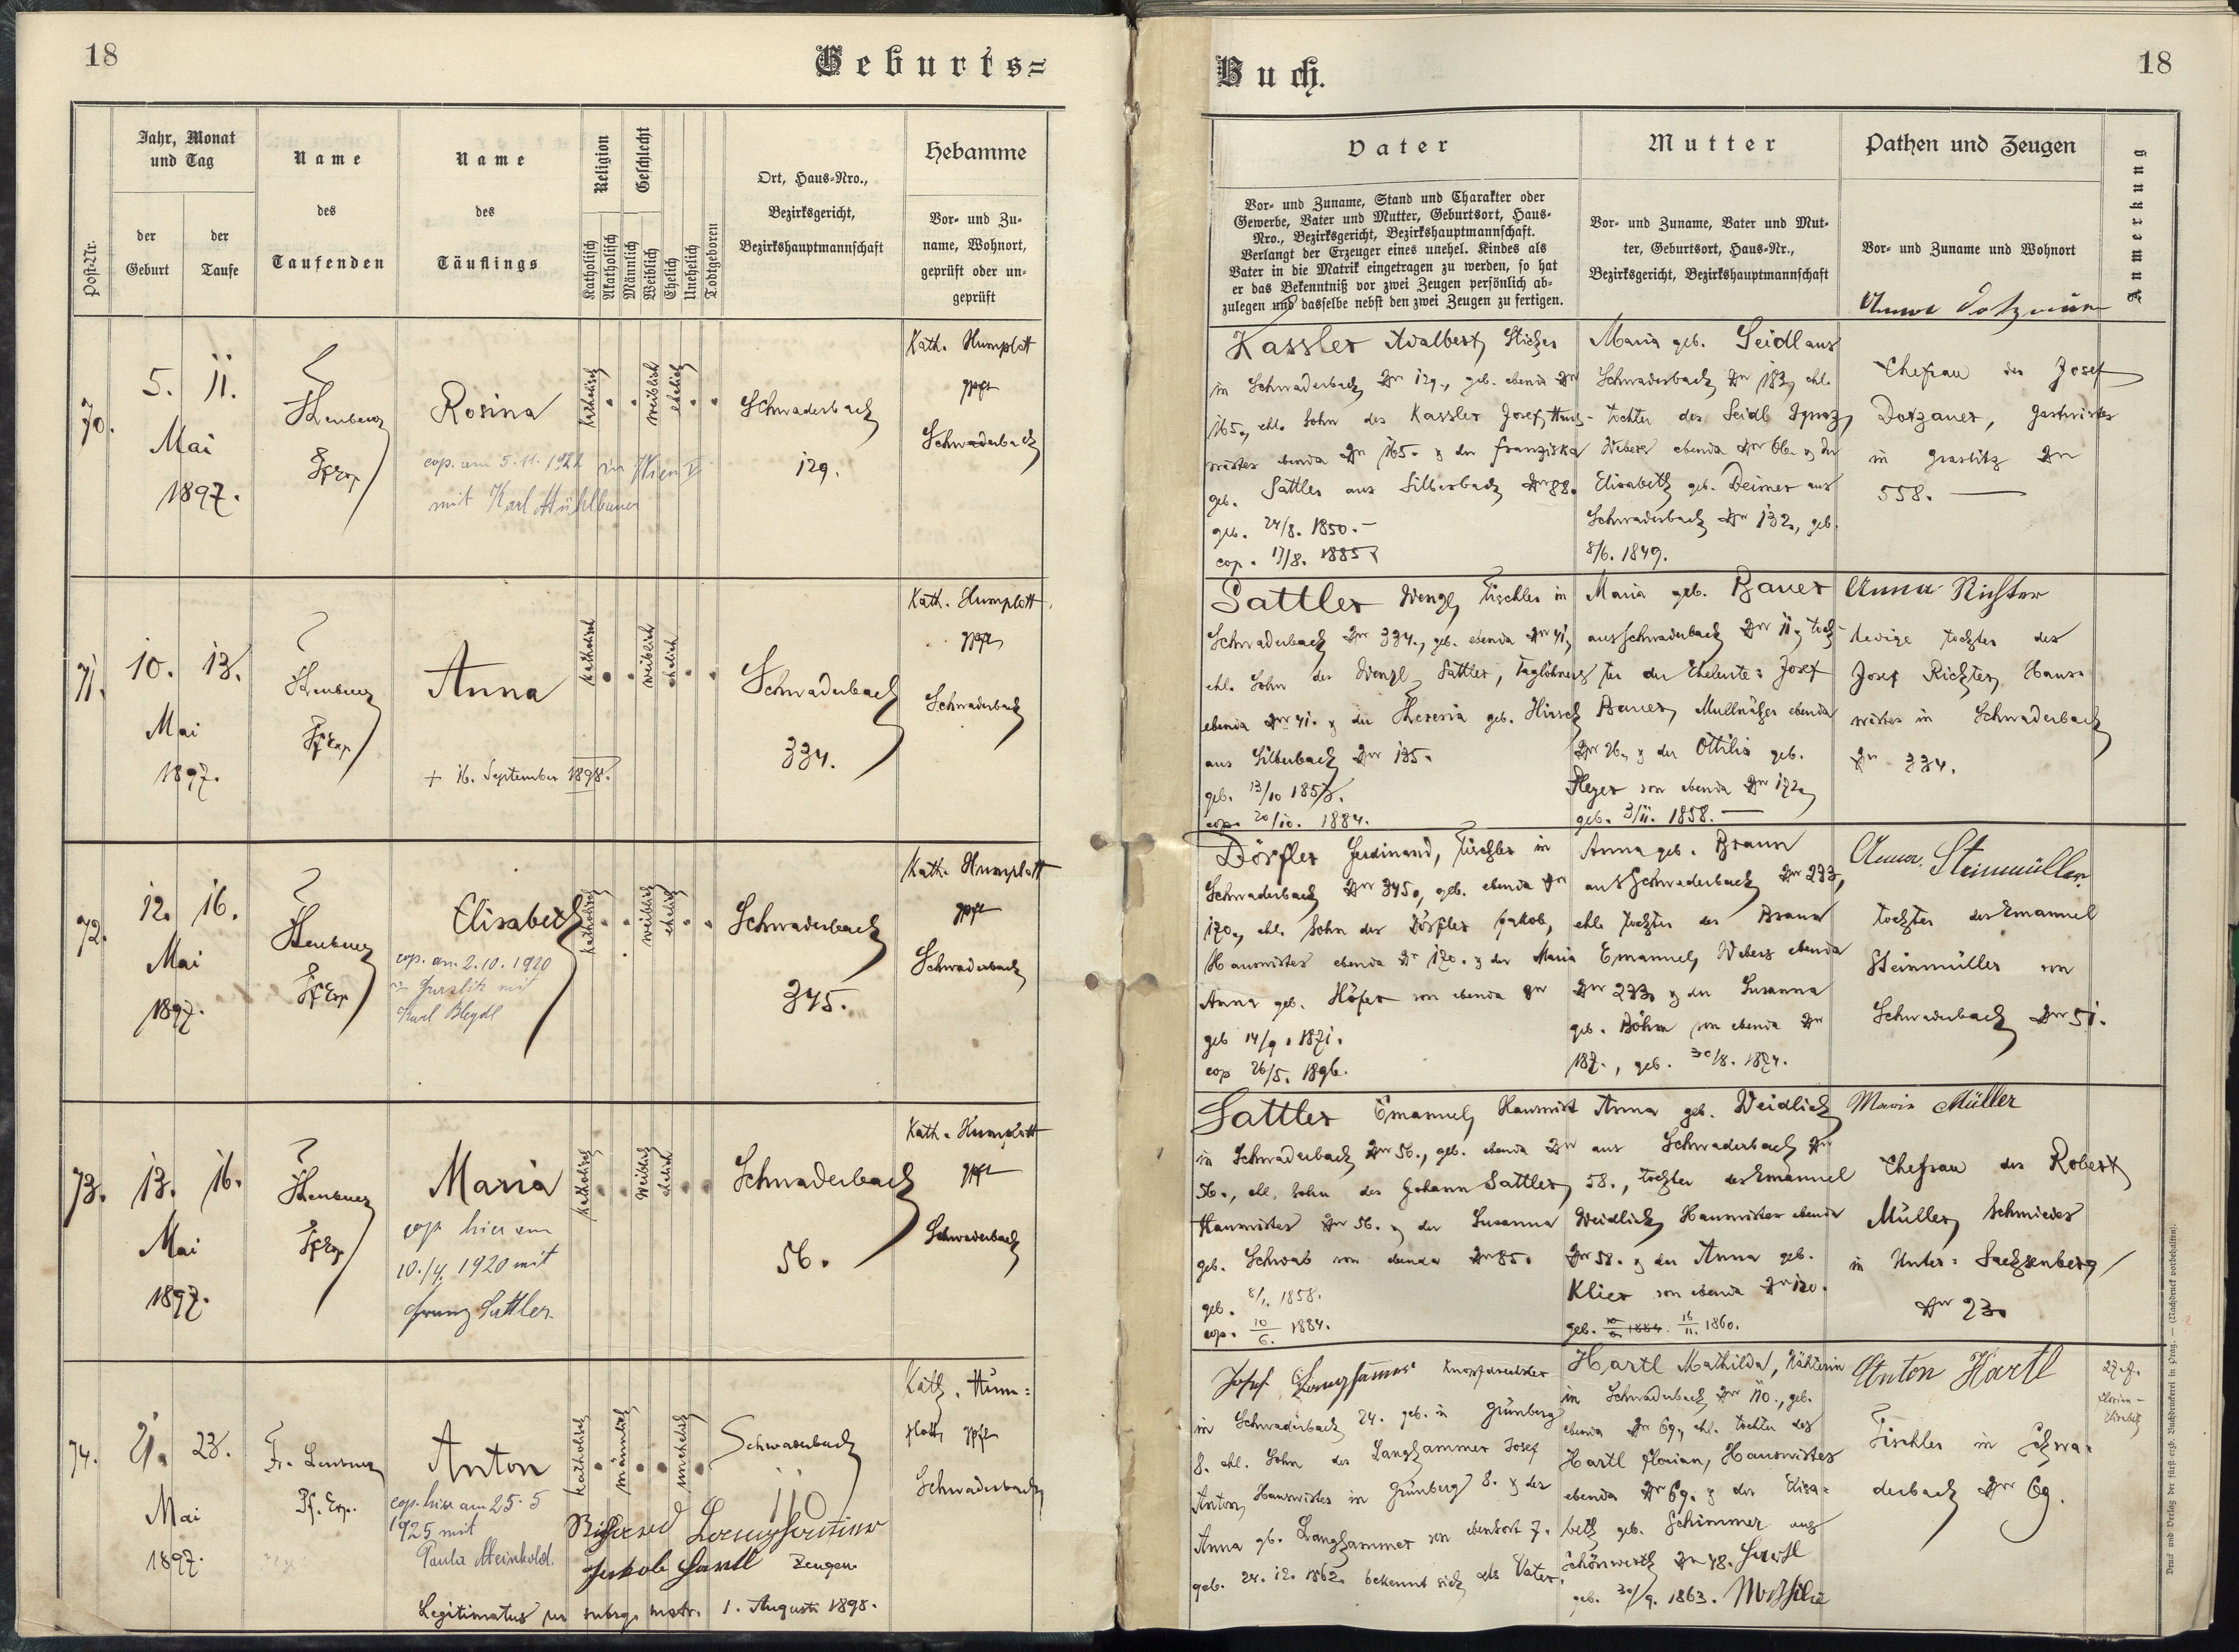 18
Geburts=
Post-Nr.
Jahr, Monat
und Tag
der
Geburt
der
Taufe
Name
des
Taufenden
Name
des
Täuflings
Religion
Katholisch
Akatholisch
Geschlecht
Männlich
Weiblich
Ehelich
Unehelich
Todtgeboren
Ort, Haus-Nro.,
Bezirksgericht,
Bezirkshauptmannschaft
Hebamme
Vor- und Zu-
name, Wohnort,
geprüft oder un-
geprüft
70.
5. 11.
Mai
1897.
Rosina
cop. am 5.11.1922 in Wien V
mit Karl Mühlbauer
katholisch
weiblich
ehelich
Schwaderbach
129.
Kath. Humplott
gpft
Schwaderbach
71.
10. 13.
Mai
1897.
Anna
+ 16. September 1898.
katholisch
weiblich
ehelich
Schwaderbach
334.
Kath. Humplott
gpft
Schwaderbach
72.
12. 16.
Mai
1897.
Elisabeth
cop. am 2.10.1920
mit
Karl
katholisch
weiblich
ehelich
Schwaderbach
345.
Kath. Humplott
gpft
Schwaderbach
73.
13. 16.
Mai
1897.
Maria
cop. hier am
10./4. 1920 mit
Franz Sattler
katholisch
weiblich
ehelich
Schwaderbach
56.
Kath. Humplott
gpft
Schwaderbach
74.
21. 23.
Mai
1897.
Fr.
Pf. Exp.
Anton
cop. hier am 25.5
1925 mit
Paula Meinhold.
katholisch
männlich
unehelich
Schwaderbach
110
Kath. Hum=
plott, gpft
Schwaderbach
Richard Langhammer
Jakob Hartl Zeugen.
Legitimatus per subsq. matr. 1. Augusti 1898.
Buch.
18
Vater
Vor- und Zuname, Stand und Charakter oder
Gewerbe, Vater und Mutter, Geburtsort, Haus-
Nro., Bezirksgericht, Bezirkshauptmannschaft.
Verlangt der Erzeuger eines unehel. Kindes als
Vater in die Matrik eingetragen zu werden, so hat
er das Bekenntniß vor zwei Zeugen persönlich ab-
zulegen und dasselbe nebst den zwei Zeugen zu fertigen.
Mutter
Vor- und Zuname, Vater und Mut-
ter, Geburtsort, Haus-Nr.,
Bezirksgericht, Bezirkshauptmannschaft
Pathen und Zeugen
Vor- und Zuname und Wohnort
Anmerkung
Kassler Adalbert, Sticker
in Schwaderbach Nr 129., geb. ebenda Nr
165., ehl. Sohn des Kassler Josef, Haus-
wirtes ebenda Nr 165. & der Franziska
geb. Sattler aus Silberbach Nr 88.
geb. 24/8. 1850.
cop. 17/8. 1885
Maria geb. Seidl aus
Schwaderbach Nr 183, ehl.
Tochter des Seidl Ignaz,
Webers ebenda Nr 66. & der
Elisabeth geb. Deimer aus
Schwaderbach Nr 132., geb.
8/6. 1849.
Anna Dotzauer
Ehefrau des Josef
Dotzauer, Gastwirtes
in Graslitz Nr
558.
Sattler Wenzl, Tischler in
Schwaderbach Nr 334., geb. ebenda Nr 41,
ehl. Sohn des Wenzl Sattler, Taglöhners
ebenda Nr 41. & der Theresia geb. Hirsch
aus Silberbach Nr 135.
geb. 13/10 1857.
cop. 20/10. 1884.
Maria geb. Bauer
aus Schwaderbach Nr 11, Toch-
ter der Eheleute: Josef
Bauer, Mullnäher ebenda
Nr 26., & der Ottilia geb.
von ebenda Nr 172,
geb. 3/11. 1858.
Anna Richter
ledige Tochter des
Josef Richter, Haus-
wirtes in Schwaderbach
Nr 334.
Dörfler Ferdinand, Tischler in
Schwaderbach Nr 345., geb. ebenda Nr
170., ehl. Sohn des Dörfler Jakob,
Hauswirtes ebenda Nr 170. & der Maria
Anna geb. Höfer von ebenda Nr
geb 14/9. 1871.
cop 26/5. 1896.
Anna geb. Braun
aus Schwaderbach Nr 273,
ehl. Tochter des Braun
Emanuel, Webers ebenda
Nr 273. & der Susanna
geb. Böhm von ebenda Nr
187., geb. 30/8. 1874.
Anna Steinmüller
Tochter des Emanuel
Steinmüller von
Schwaderbach Nr 51.
Sattler Emanuel, Hauswirt
in Schwaderbach Nr 56., geb. ebenda Nr
56., ehl. Sohn des Johann Sattler,
Hauswirtes Nr 56. & der Susanna
geb. Schwab von ebenda Nr 85.
geb. 8/1. 1858.
cop. 10/6. 1884.
Anna geb. Weidlich
aus Schwaderbach Nr
58., Tochter des Emanuel
Weidlich, Hauswirtes ebenda
Nr 58. & der Anna geb.
Klier von ebenda Nr 120.
geb. 10/6. 1884. 16/11. 1860.
Maria Müller
Ehefrau des Robert
Müller, Schmiedes
in Unter-Sachsenberg
Nr 23.
Josef Langhammer
in Schwaderbach 24. geb. in Grünberg
8. ehl. Sohn des Langhammer Josef
Anton, Hauswirtes in Grünberg 8. & der
Anna gb. Langhammer von ebendort 7.
geb. 24. 12. 1862. bekennt sich als Vater.
Hartl Mathilda, Nähterin
in Schwaderbach Nr 110., geb.
ebenda Nr 69., ehl. Tochter des
Hartl Florian, Hauswirtes
ebenda Nr 69. & der Elisa-
beth geb. Schimmer aus
Schönwerth Nr 48. Hartl
geb. 30/9. 1863. Mathilde
Anton Hartl
Tischler in Schwa-
derbach Nr 69.
Florian -
Elisabeth
Druck und Verlag der fürst-erzb. Buchdruckerei in Prag. — (Nachdruck vorbehalten).